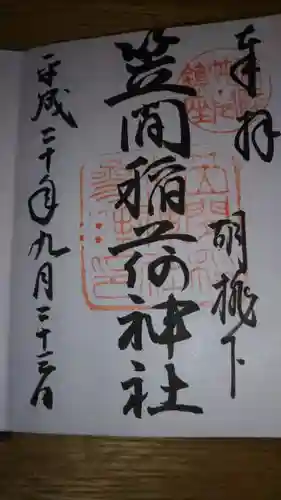 奉拝
胡桃下
笠間稲荷神社
平成二十年九月二十三日